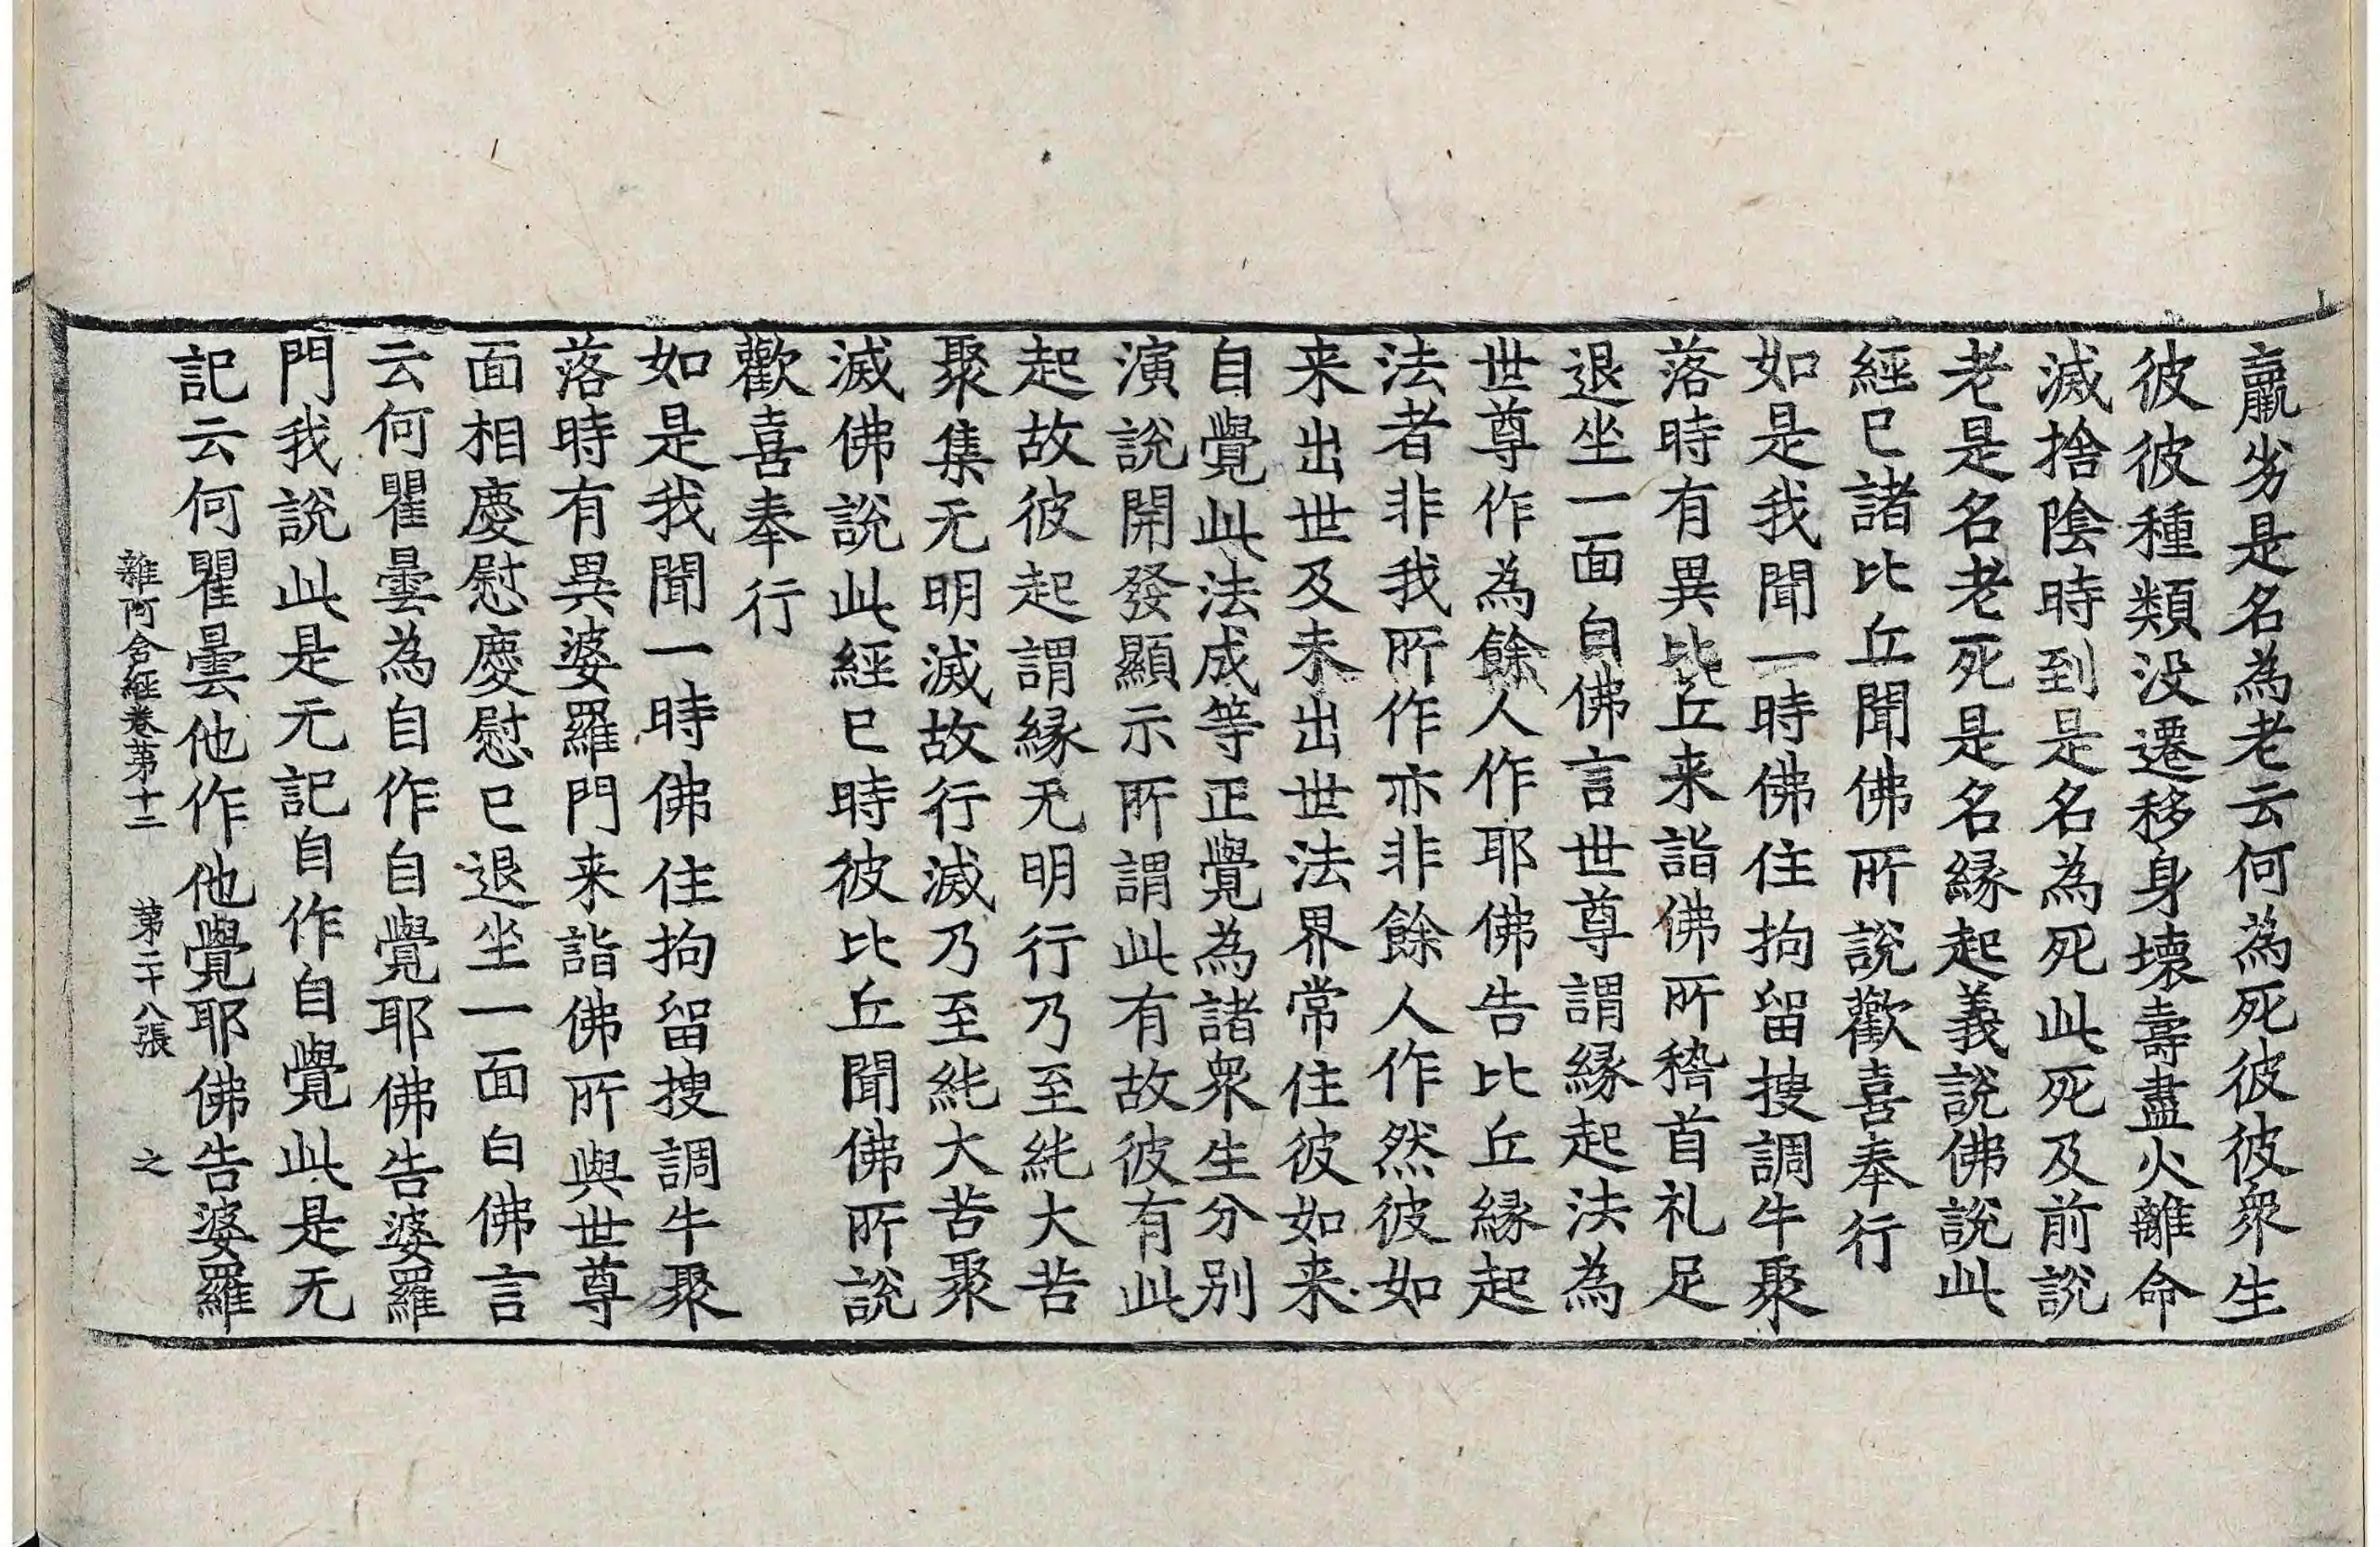 羸劣是名為老云何為死彼彼衆生
彼彼種類没遷移身壞壽盡火離命
滅捨陰時到是名為死此死及前說
老是名老死是名緣起義說佛說此
經已諸比丘聞佛所說歡喜奉行
如是我聞一時佛住拘留搜調牛聚
落時有異比丘来詣佛所稽首礼足
退坐一面自佛言世尊謂緣起法為
世尊作為餘人作耶佛告比丘緣起
法者非我所作亦非餘人作然彼如
来出世及未出世法界常住彼如来
自覺此法成等正覺為諸衆生分别
演說開發顯示所謂此有故彼有此
起故彼起謂緣无明行乃至純大苦
聚集无明滅故行滅乃至純大苦聚
滅佛說此經已時彼比丘聞佛所說
歡喜奉行
如是我聞一時佛住拘留搜調牛聚
落時有異婆羅門来詣佛所與世尊
面相慶慰慶慰已退坐一面白佛言
云何瞿曇為自作自覺耶佛告婆羅
門我說此是无記自作自覺此是无
記云何瞿曇他作他覺耶佛告婆羅
雜阿含經卷第十二 第二十八張 之